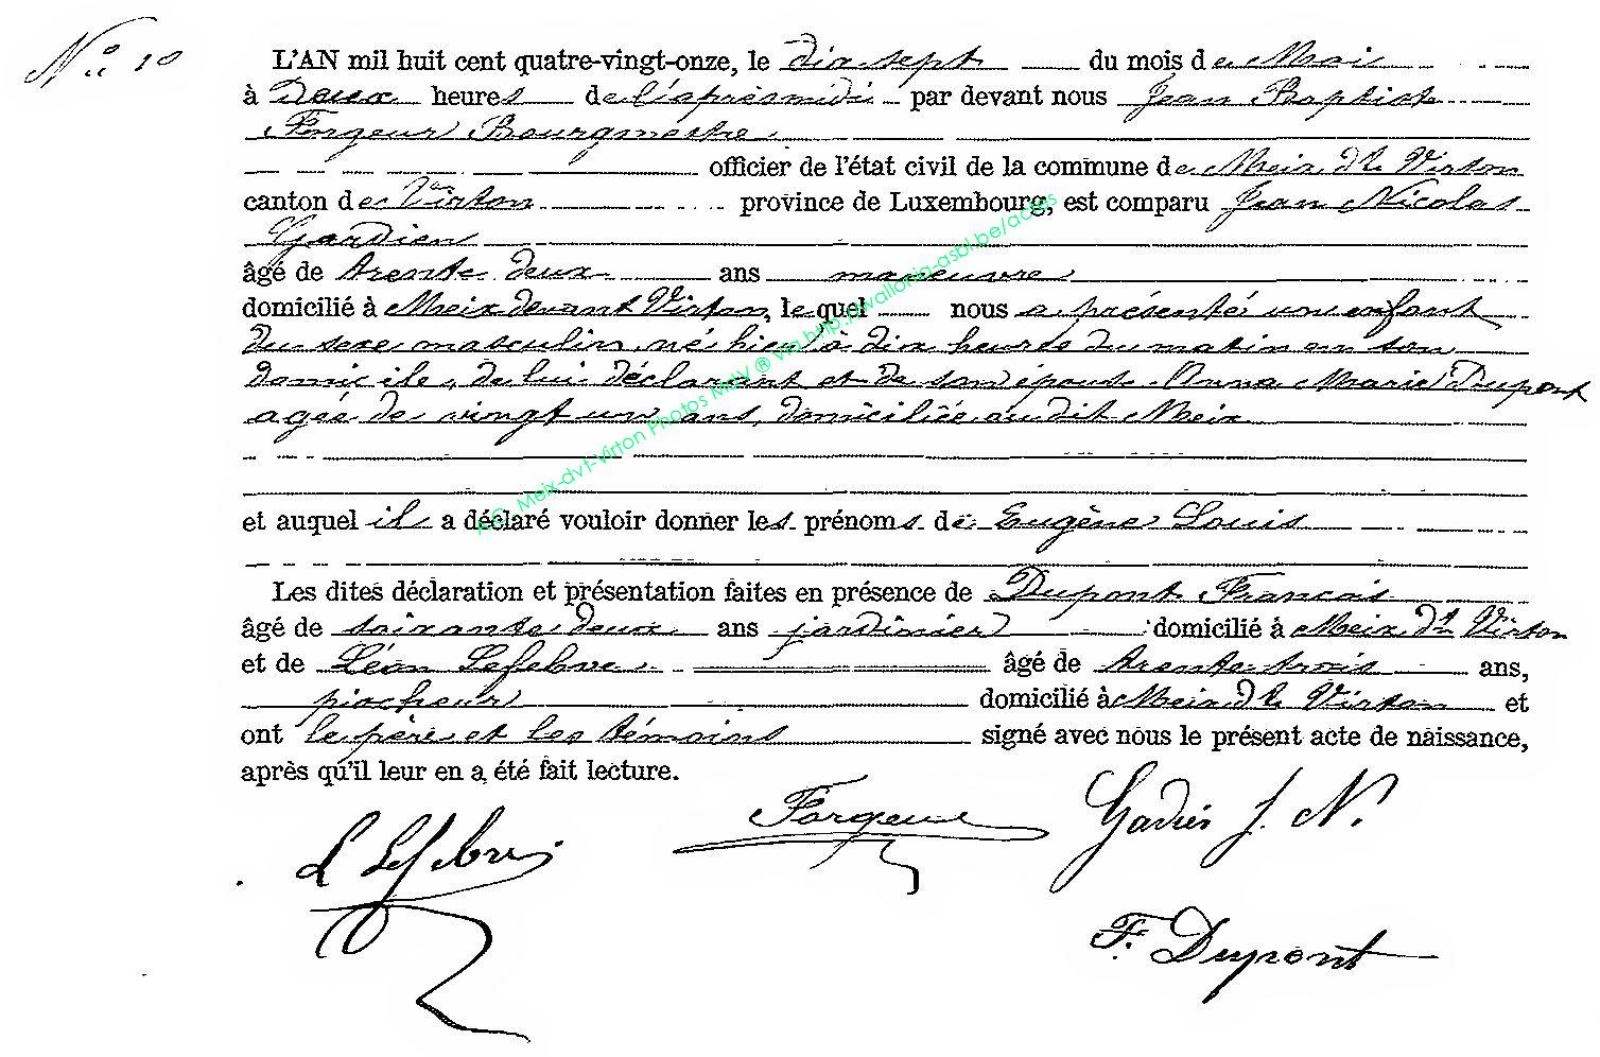 N° 10
L'AN mil huit cent quatre-vingt-onze, le dix sept du mois de Mai
à Deux heures de l'aprèsmidi par devant nous Jean Baptiste
Forgeur Bourgmestre
officier de l'état civil de la commune de Meix dt Virton
canton de Virton province de Luxembourg, est comparu Jean Nicolas
Gardien
âgé de trente deux ans manœuvre
domicilié à Meix devant Virton, lequel nous a présenté un enfant
du sexe masculin, né hier à dix heures du matin en son
domicile, de lui déclarant et de son épouse Anna Marie Dupont
agée de vingt un ans, domiciliée audit Meix
et auquel il a déclaré vouloir donner les prénoms de Eugène Louis
Les dites déclaration et présentation faites en présence de Dupont Francois
âgé de soixante deux ans jardinier domicilié à Meix dt Virton
et de Léon Lefebvre âgé de trente trois ans,
piocheur domicilié à Meix dt Virton et
ont le père et les témoins signé avec nous le présent acte de naissance,
après qu'il leur en a été fait lecture.
Forgeur Gadien J. N.
L Lefebvre
F. Dupont
A.C. Meix-dvt-Virton Photos MdV ® via http://wallonia-asbl.be/actes